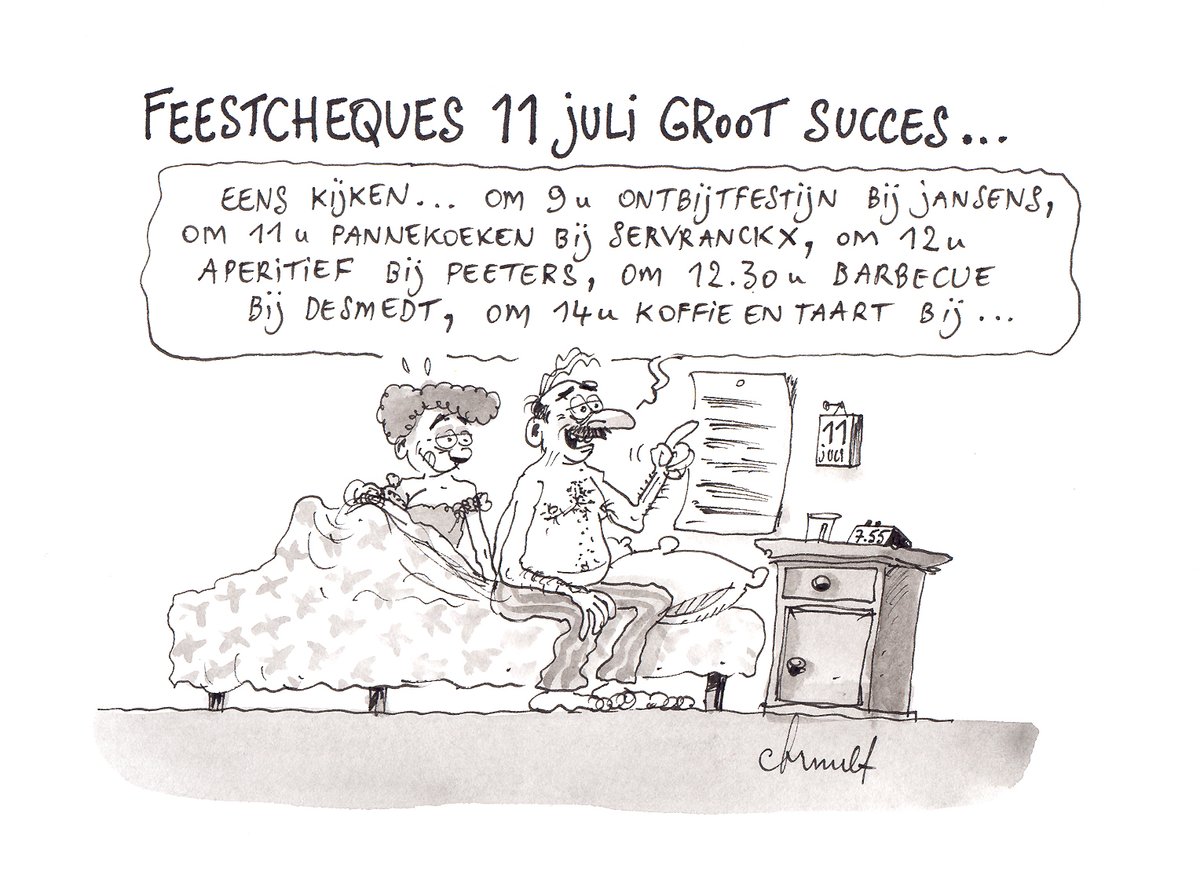 FEESTCHEQUES 11 juli GROOT SUCCES...
EENS KIJKEN... OM 9u ONTBIJTFESTIJN BIJ JANSENS,
OM 11u PANNEKOEKEN BIJ SERVRANCKX, OM 12u
APERITIEF BIJ PEETERS, OM 12.30u BARBECUE
BIJ DESMEDT, OM 14u KOFFIE EN TAART BIJ...
11
juli
7.55